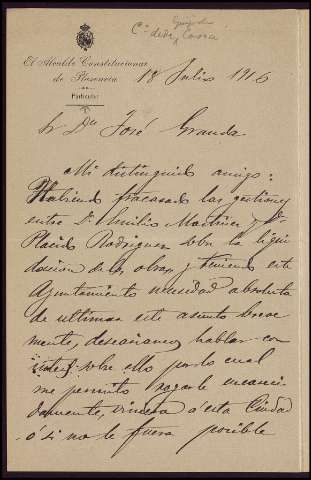 El Alcalde Constitucional
de Plasencia
Particular
18 Julio 1916
Sr Dn José Granda
Mi distinguido amigo:
Habiendo fracasado las gestiones
entre D. Emilio Martinez y D.
Placido Rodriguez sobre la liqui
dacion de las obras, y teniendo este
Ayuntamiento necesidad absoluta
de ultimar este asunto breve
mente, deseariamos hablar con
usted sobre ello por lo cual
me permito rogarle encareci
damente, viniera a esta Ciudad
ó si no le fuera posible